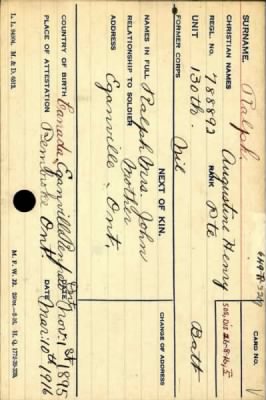 CARD NO.
SURNAME. Ralph.
CHRISTIAN NAMES Augustine Henry
REGL. NO. 788892 RANK Pte
UNIT 130th. Batt
FORMER CORPS Nil
NEXT OF KIN.
NAMES IN FULL Ralph Mrs. John
RELATIONSHIP TO SOLDIER Mother
ADDRESS Eganville, Ont,
CHANGE OF ADDRESS
COUNTRY OF BIRTH Canada, Eganville, Renfrew DATE Nov: 1st 1895
PLACE OF ATTESTATION Pembroke Ont DATE Mar: 10th 1916
L. L. 94304. M. & D. 6312.
M. F. W. 22.